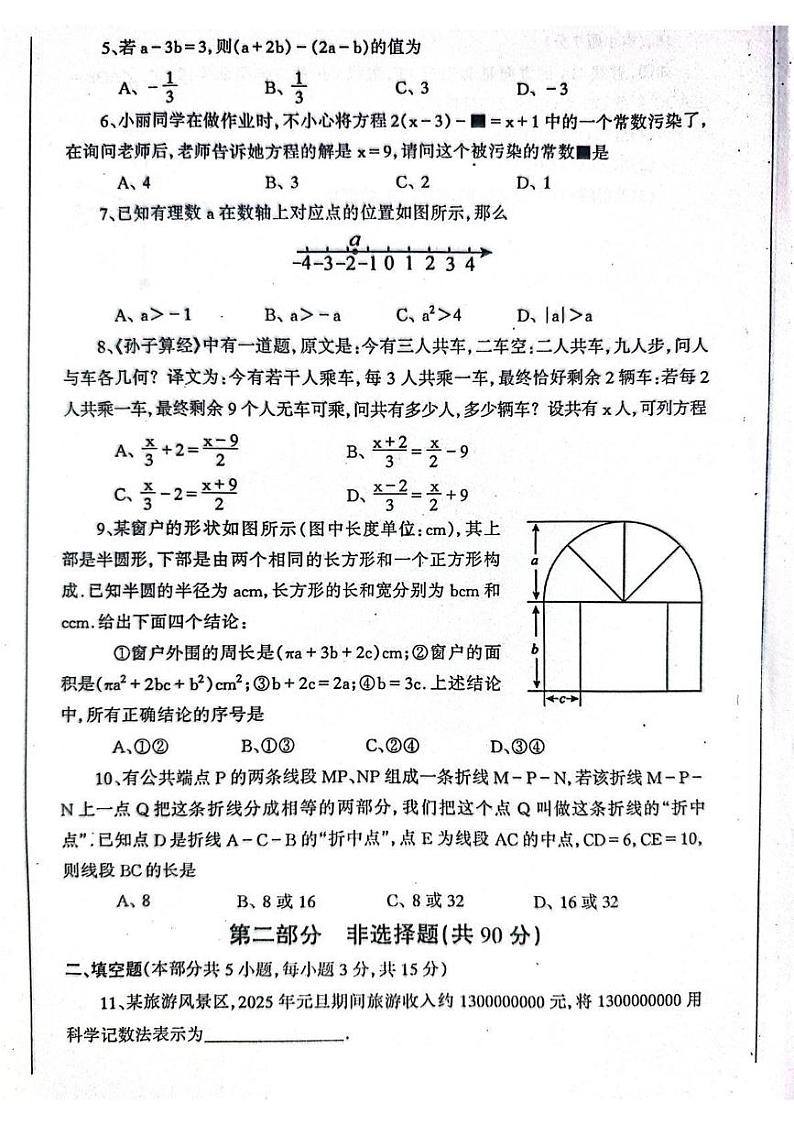 5、若a-3b=3,则(a+2b)-(2a-b)的值为
A、-1/3 B、1/3 C、3 D、-3
6、小丽同学在做作业时,不小心将方程2(x-3)-■=x+1中的一个常数污染了,
在询问老师后,老师告诉她方程的解是x=9,请问这个被污染的常数■是
A、4 B、3 C、2 D、1
7、已知有理数a在数轴上对应点的位置如图所示,那么
a
-4-3-2-1 0 1 2 3 4
A、a>-1 B、a>-a C、a²>4 D、|a|>a
8、《孙子算经》中有一道题,原文是:今有三人共车,二车空:二人共车,九人步,问人
与车各几何?译文为:今有若干人乘车,每3人共乘一车,最终恰好剩余2辆车:若每2
人共乘一车,最终剩余9个人无车可乘,问共有多少人,多少辆车?设共有x人,可列方程
A、x/3+2=(x-9)/2 B、(x+2)/3=x/2-9
C、x/3-2=(x+9)/2 D、(x-2)/3=x/2+9
9、某窗户的形状如图所示(图中长度单位:cm),其上
部是半圆形,下部是由两个相同的长方形和一个正方形构
成.已知半圆的半径为acm,长方形的长和宽分别为bcm和
ccm.给出下面四个结论:
①窗户外围的周长是(πa+3b+2c)cm;②窗户的面
积是(πa²+2bc+b²)cm²;③b+2c=2a;④b=3c.上述结论
中,所有正确结论的序号是
a
b
c
A、①② B、①③ C、②④ D、③④
10、有公共端点P的两条线段MP、NP组成一条折线M-P-N,若该折线M-P-
N上一点Q把这条折线分成相等的两部分,我们把这个点Q叫做这条折线的“折中
点”.已知点D是折线A-C-B的“折中点”,点E为线段AC的中点,CD=6,CE=10,
则线段BC的长是
A、8 B、8或16 C、8或32 D、16或32
第二部分 非选择题(共90分)
二、填空题(本部分共5小题,每小题3分,共15分)
11、某旅游风景区,2025年元旦期间旅游收入约1300000000元,将1300000000用
科学记数法表示为______________.